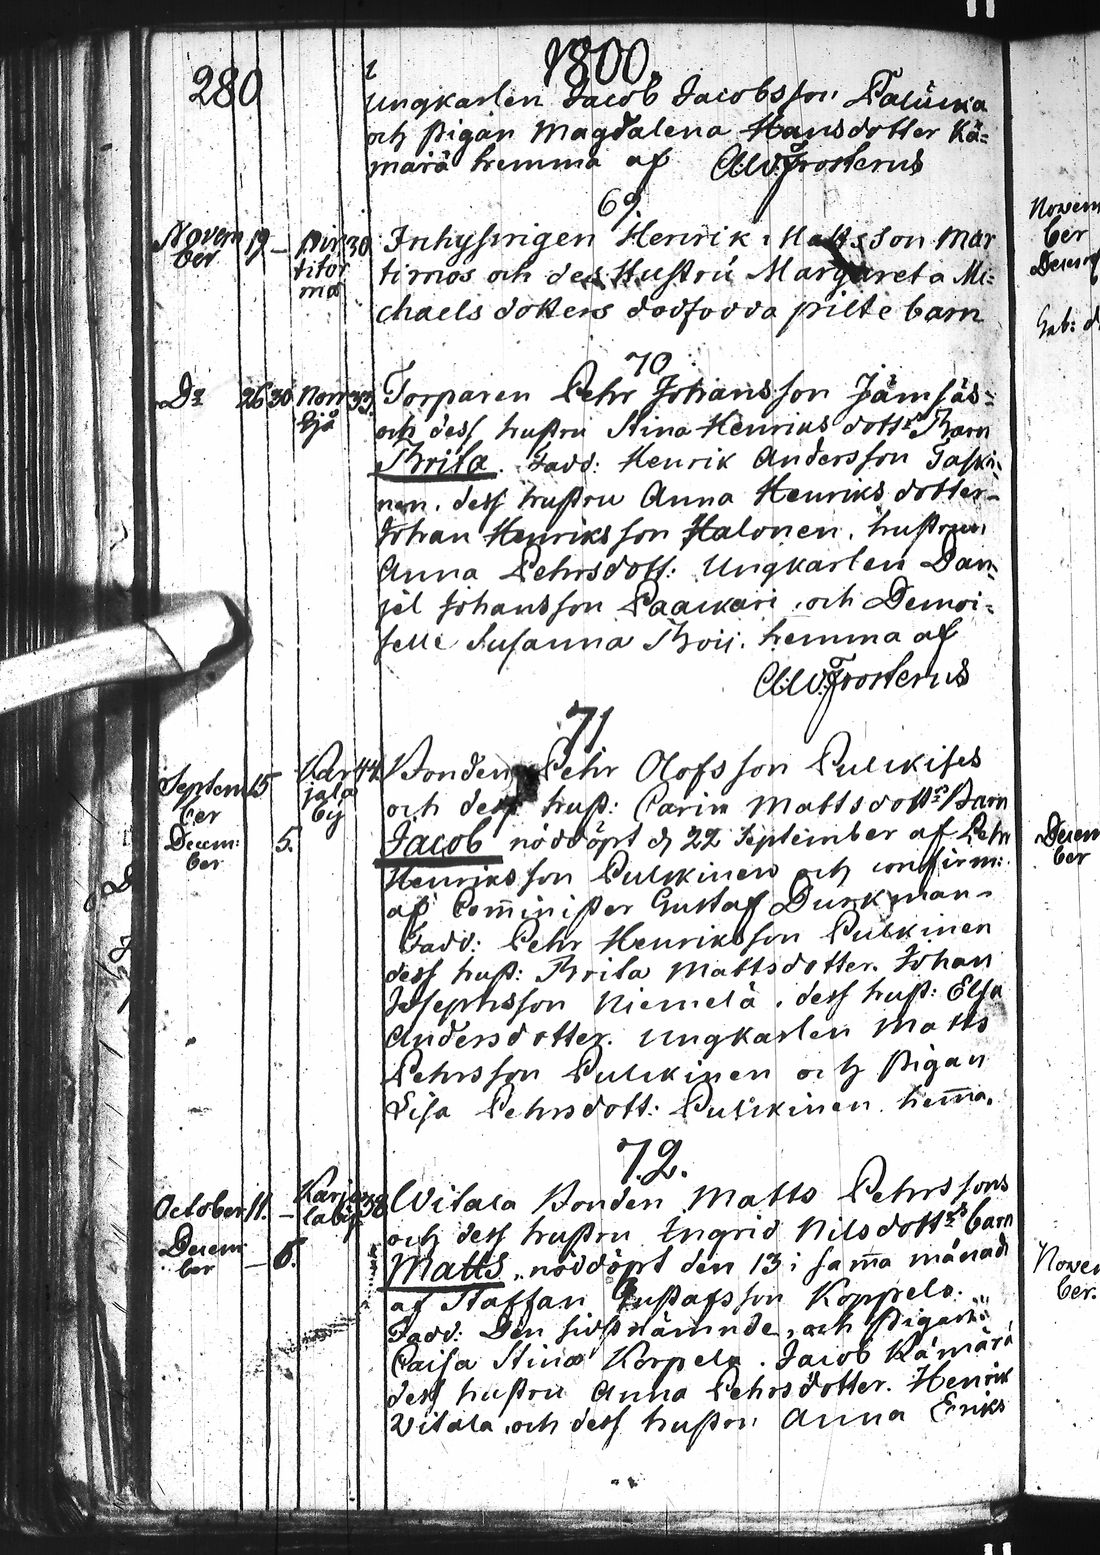 280
1800.
Ungkarlen Jacob Jacobsson
och pigan Magdalena Hansdotter Kä=
märä hemma af A:W:Frosterus
69.
Novem
ber
19 —
Pir
titör
mä
30
Inhysingen Henrik Mattsson Mar
timos och des Hustru Margareta Mi=
chaels dotters dödfödda pilte barn
70
Do
26 30
Norr
sjö
33.
Torparen Pehr Johansson Jämsäs=
och dess hustru Stina Henriks dotts Barn
Brita. Fadd: Henrik Andersson Taski=
nen. dess hustru Anna Henriks dotter=
Johan Henriksson Halonen. hustrun
Anna Pehrsdott: Ungkarlen Dan=
jel Johansson Paackari och Demoi=
selle Susanna Boij. hemma af
A:W:Frosterus
71
Septem
ber
15
Decem:
ber
5.
Kar
jala
by
44
Bonden Pehr Olofsson Pulkises
och dess hust: Carin Mattsdotts Barn
Jacob nöddöpt d 22 September af Pehr
Henriksson Pulkinen och confirm:
af Comminister Gustaf Durkman=
Fadd: Pehr Henriksson Pulkinen
dess hust: Brita Mattsdotter. Johan
Josephsson Niemelä. dess hust: Elsa
Andersdotter. Ungkarlen Matts
Pehrsson Pulkinen och pigan
Lisa Pehrsdott: Pulkinen hemma.
72.
October
11. —
Decem
ber
— 6.
Karja
laby
38
Witala Bonden Matts Pehrssons
och dess hustru Ingrid Nilsdotts barn
Matts, nöddöpt den 13 i samma månad
af Staffan Gustafsson Koppelo.
Fadd: Den sistnämnde, och Pigan
Caisa Stina Korpela. Jacob Kämärä
dess hustru Anna Pehrsdotter. Henrik
Witala och dess hustru Anna Eriks
Novem
ber
Decem
ber
Novem
ber.